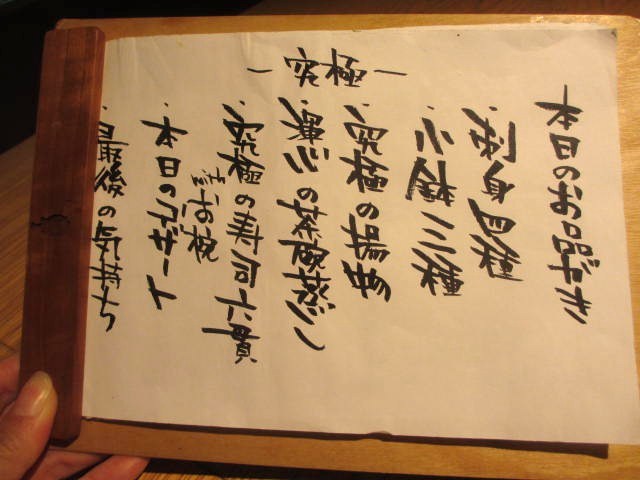 －究極－
本日のお品がき
・刺身四種
・小鉢三種
・究極の揚物
・渾心の茶碗蒸し
・究極の寿司六貫
お椀
・本日のデザート
・最後の気持ち